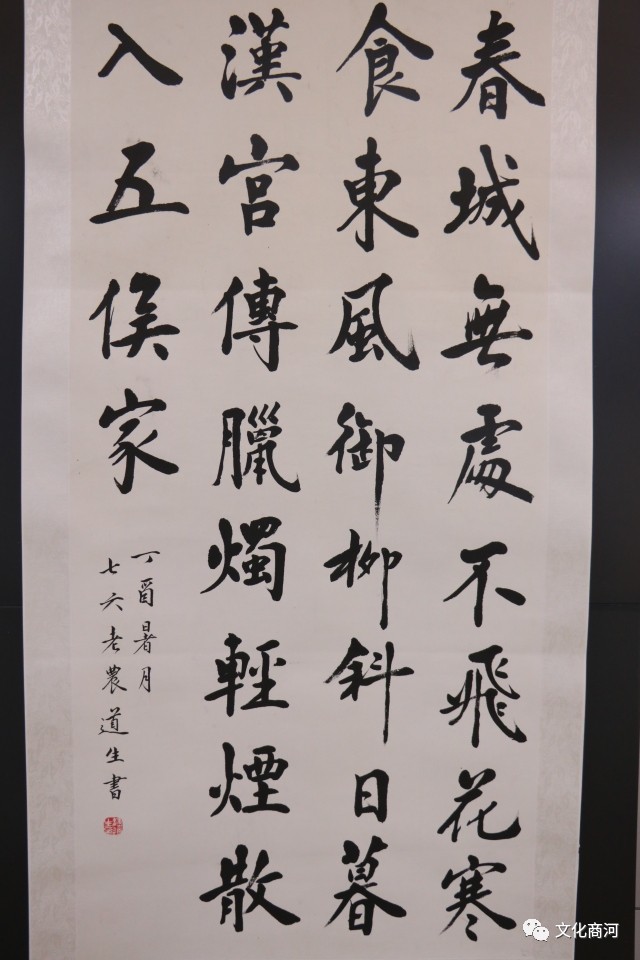 春城無處不飛花寒
食東風御柳斜日暮
漢宮傳臘燭輕煙散
入五侯家
丁酉暑月
七六老農道生書
文化商河